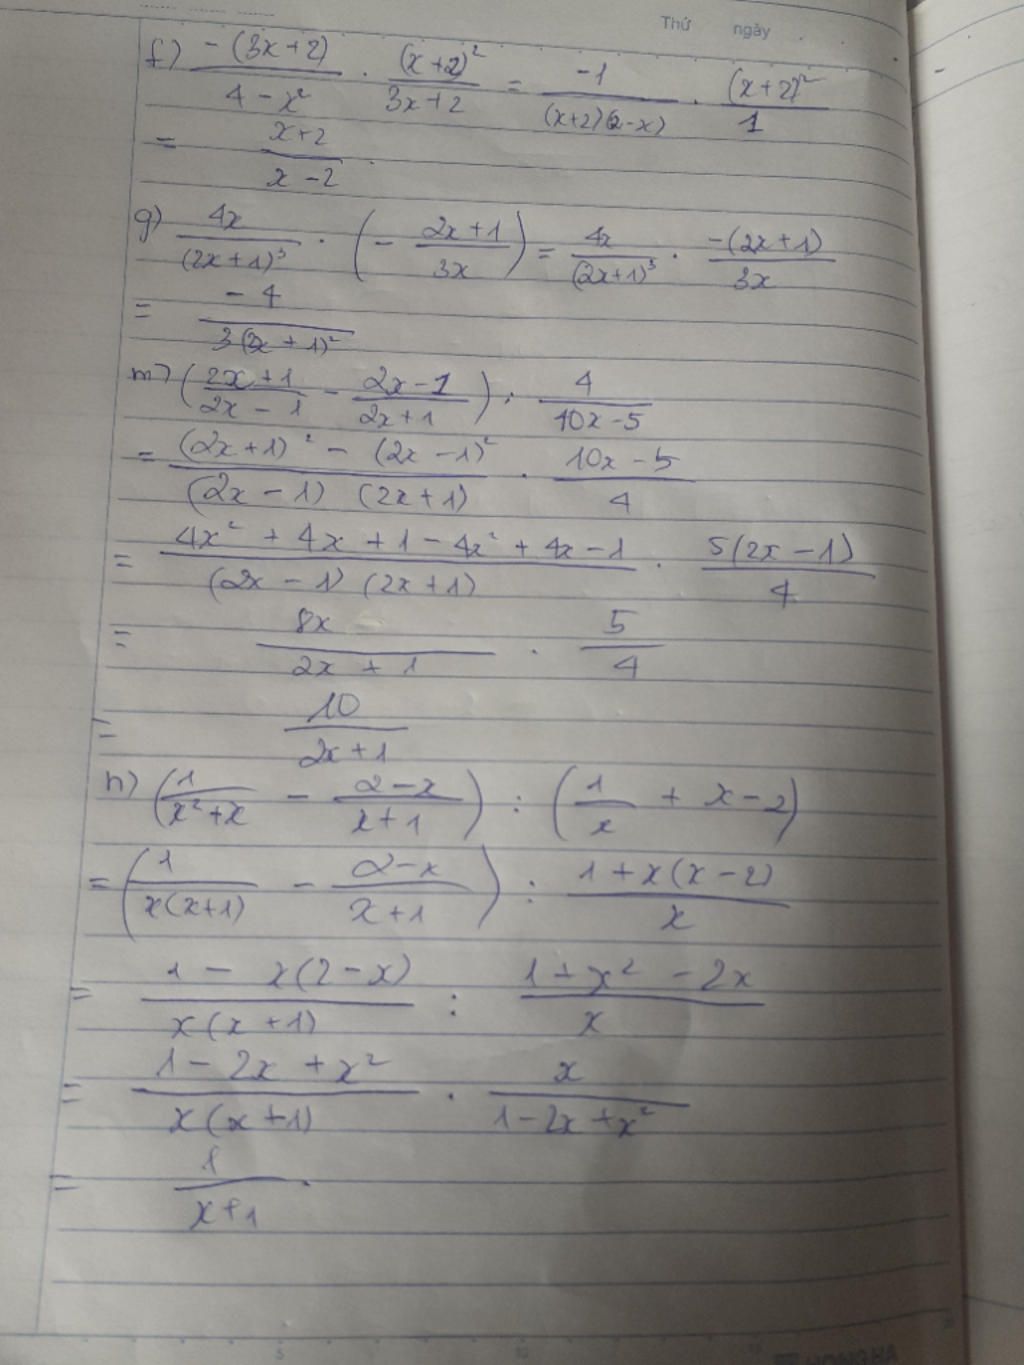 Thứ ngày
f) \frac{-(3x+2)}{4-x^2} . \frac{(x+2)^2}{3x+2} = \frac{-1}{(x+2)(2-x)} . \frac{(x+2)^2}{1}
= \frac{x+2}{x-2} .
g) \frac{4x}{(2x+1)^3} . (-\frac{2x+1}{3x}) = \frac{4x}{(2x+1)^3} . \frac{-(2x+1)}{3x}
= \frac{-4}{3(2x+1)^2}
m) (\frac{2x+1}{2x-1} - \frac{2x-1}{2x+1}) : \frac{4}{10x-5}
= \frac{(2x+1)^2 - (2x-1)^2}{(2x-1)(2x+1)} . \frac{10x-5}{4}
= \frac{4x^2+4x+1-4x^2+4x-1}{(2x-1)(2x+1)} . \frac{5(2x-1)}{4}
= \frac{8x}{2x+1} . \frac{5}{4}
= \frac{10}{2x+1}
n) (\frac{1}{x^2+x} - \frac{2-x}{x+1}) : (\frac{1}{x} + x-2)
= (\frac{1}{x(x+1)} - \frac{2-x}{x+1}) : \frac{1+x(x-2)}{x}
= \frac{1-x(2-x)}{x(x+1)} : \frac{1+x^2-2x}{x}
= \frac{1-2x+x^2}{x(x+1)} . \frac{x}{1-2x+x^2}
= \frac{1}{x+1} .
5 10 15
HONGHA